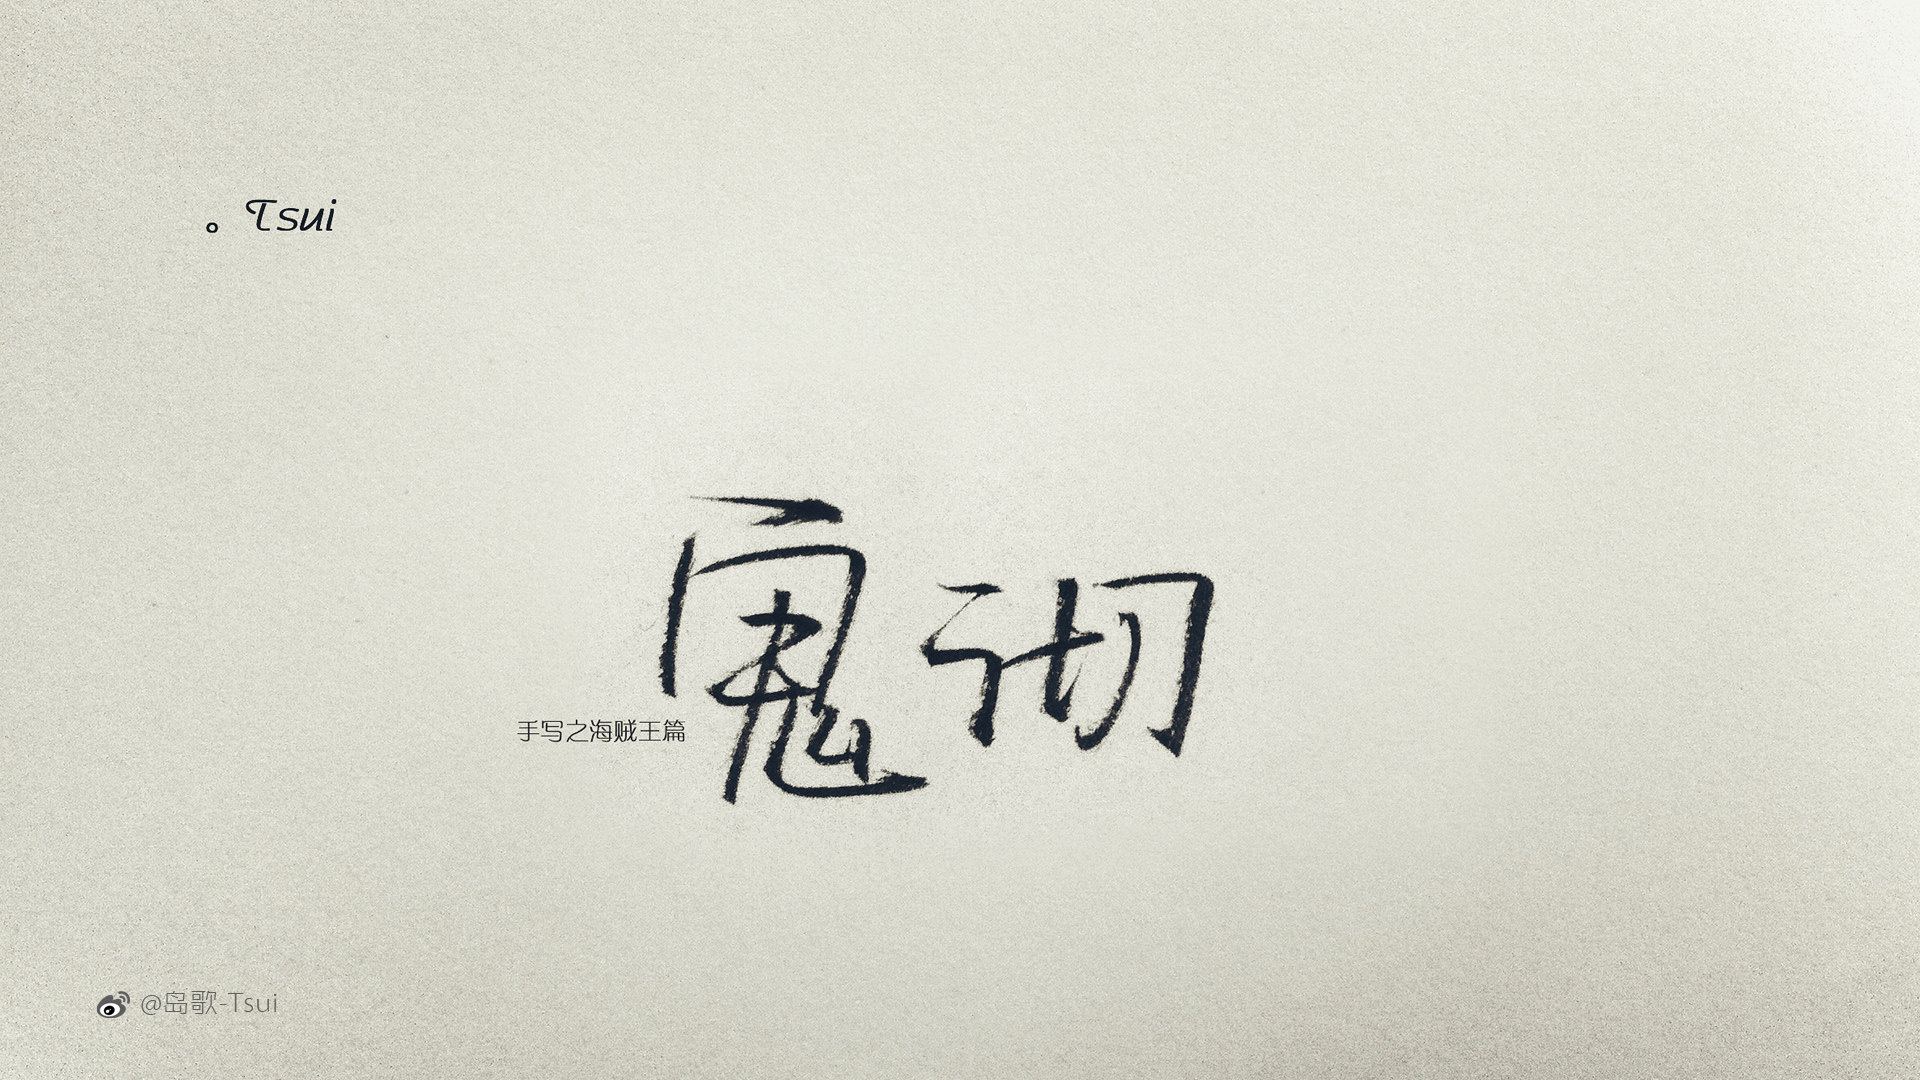 。Tsui
鬼彻
手写之海贼王篇
@岛歌-Tsui